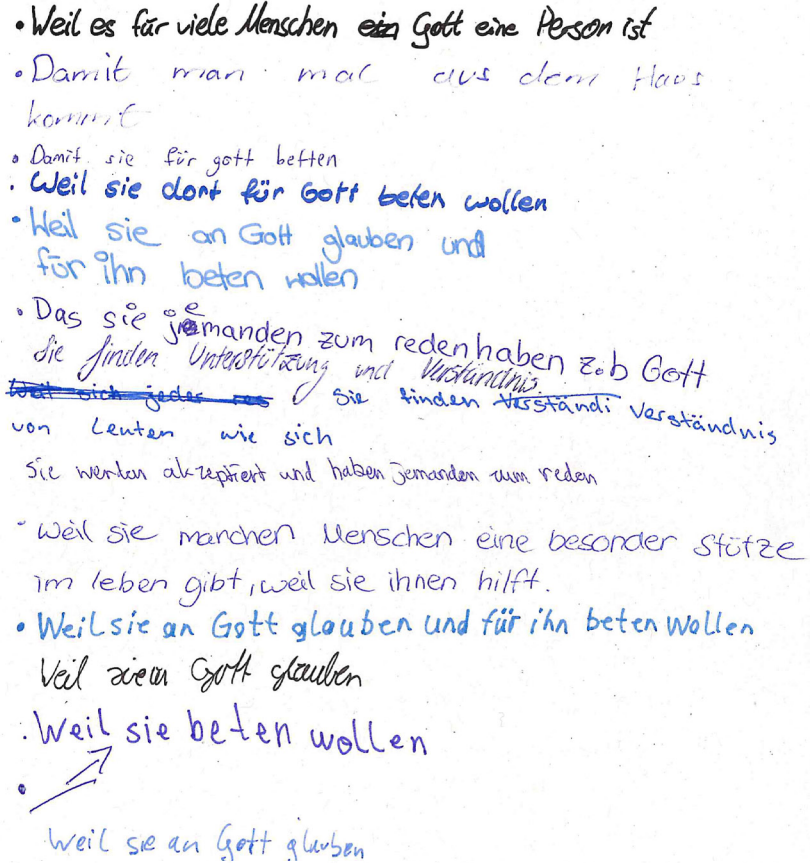 • Weil es für viele Menschen ein Gott eine Person ist
• Damit man mal aus dem Haus
kommt
• Damit sie für gott betten
• Weil sie dort für Gott beten wollen
• Weil sie an Gott glauben und
für ihn beten wollen
• Das sie jemanden zum reden haben z.b Gott
Sie finden Unterstützung und Verständnis.
Weil sich jedes Sie finden Verständi Verständnis
von Leuten wie sich
Sie werden akzeptiert und haben jemanden zum reden
• weil sie manchen Menschen eine besonder Stütze
im leben gibt, weil sie ihnen hilft.
• Weil sie an Gott glauben und für ihn beten wollen
Weil sie an Gott glauben
• Weil sie beten wollen
•
Weil sie an Gott glauben